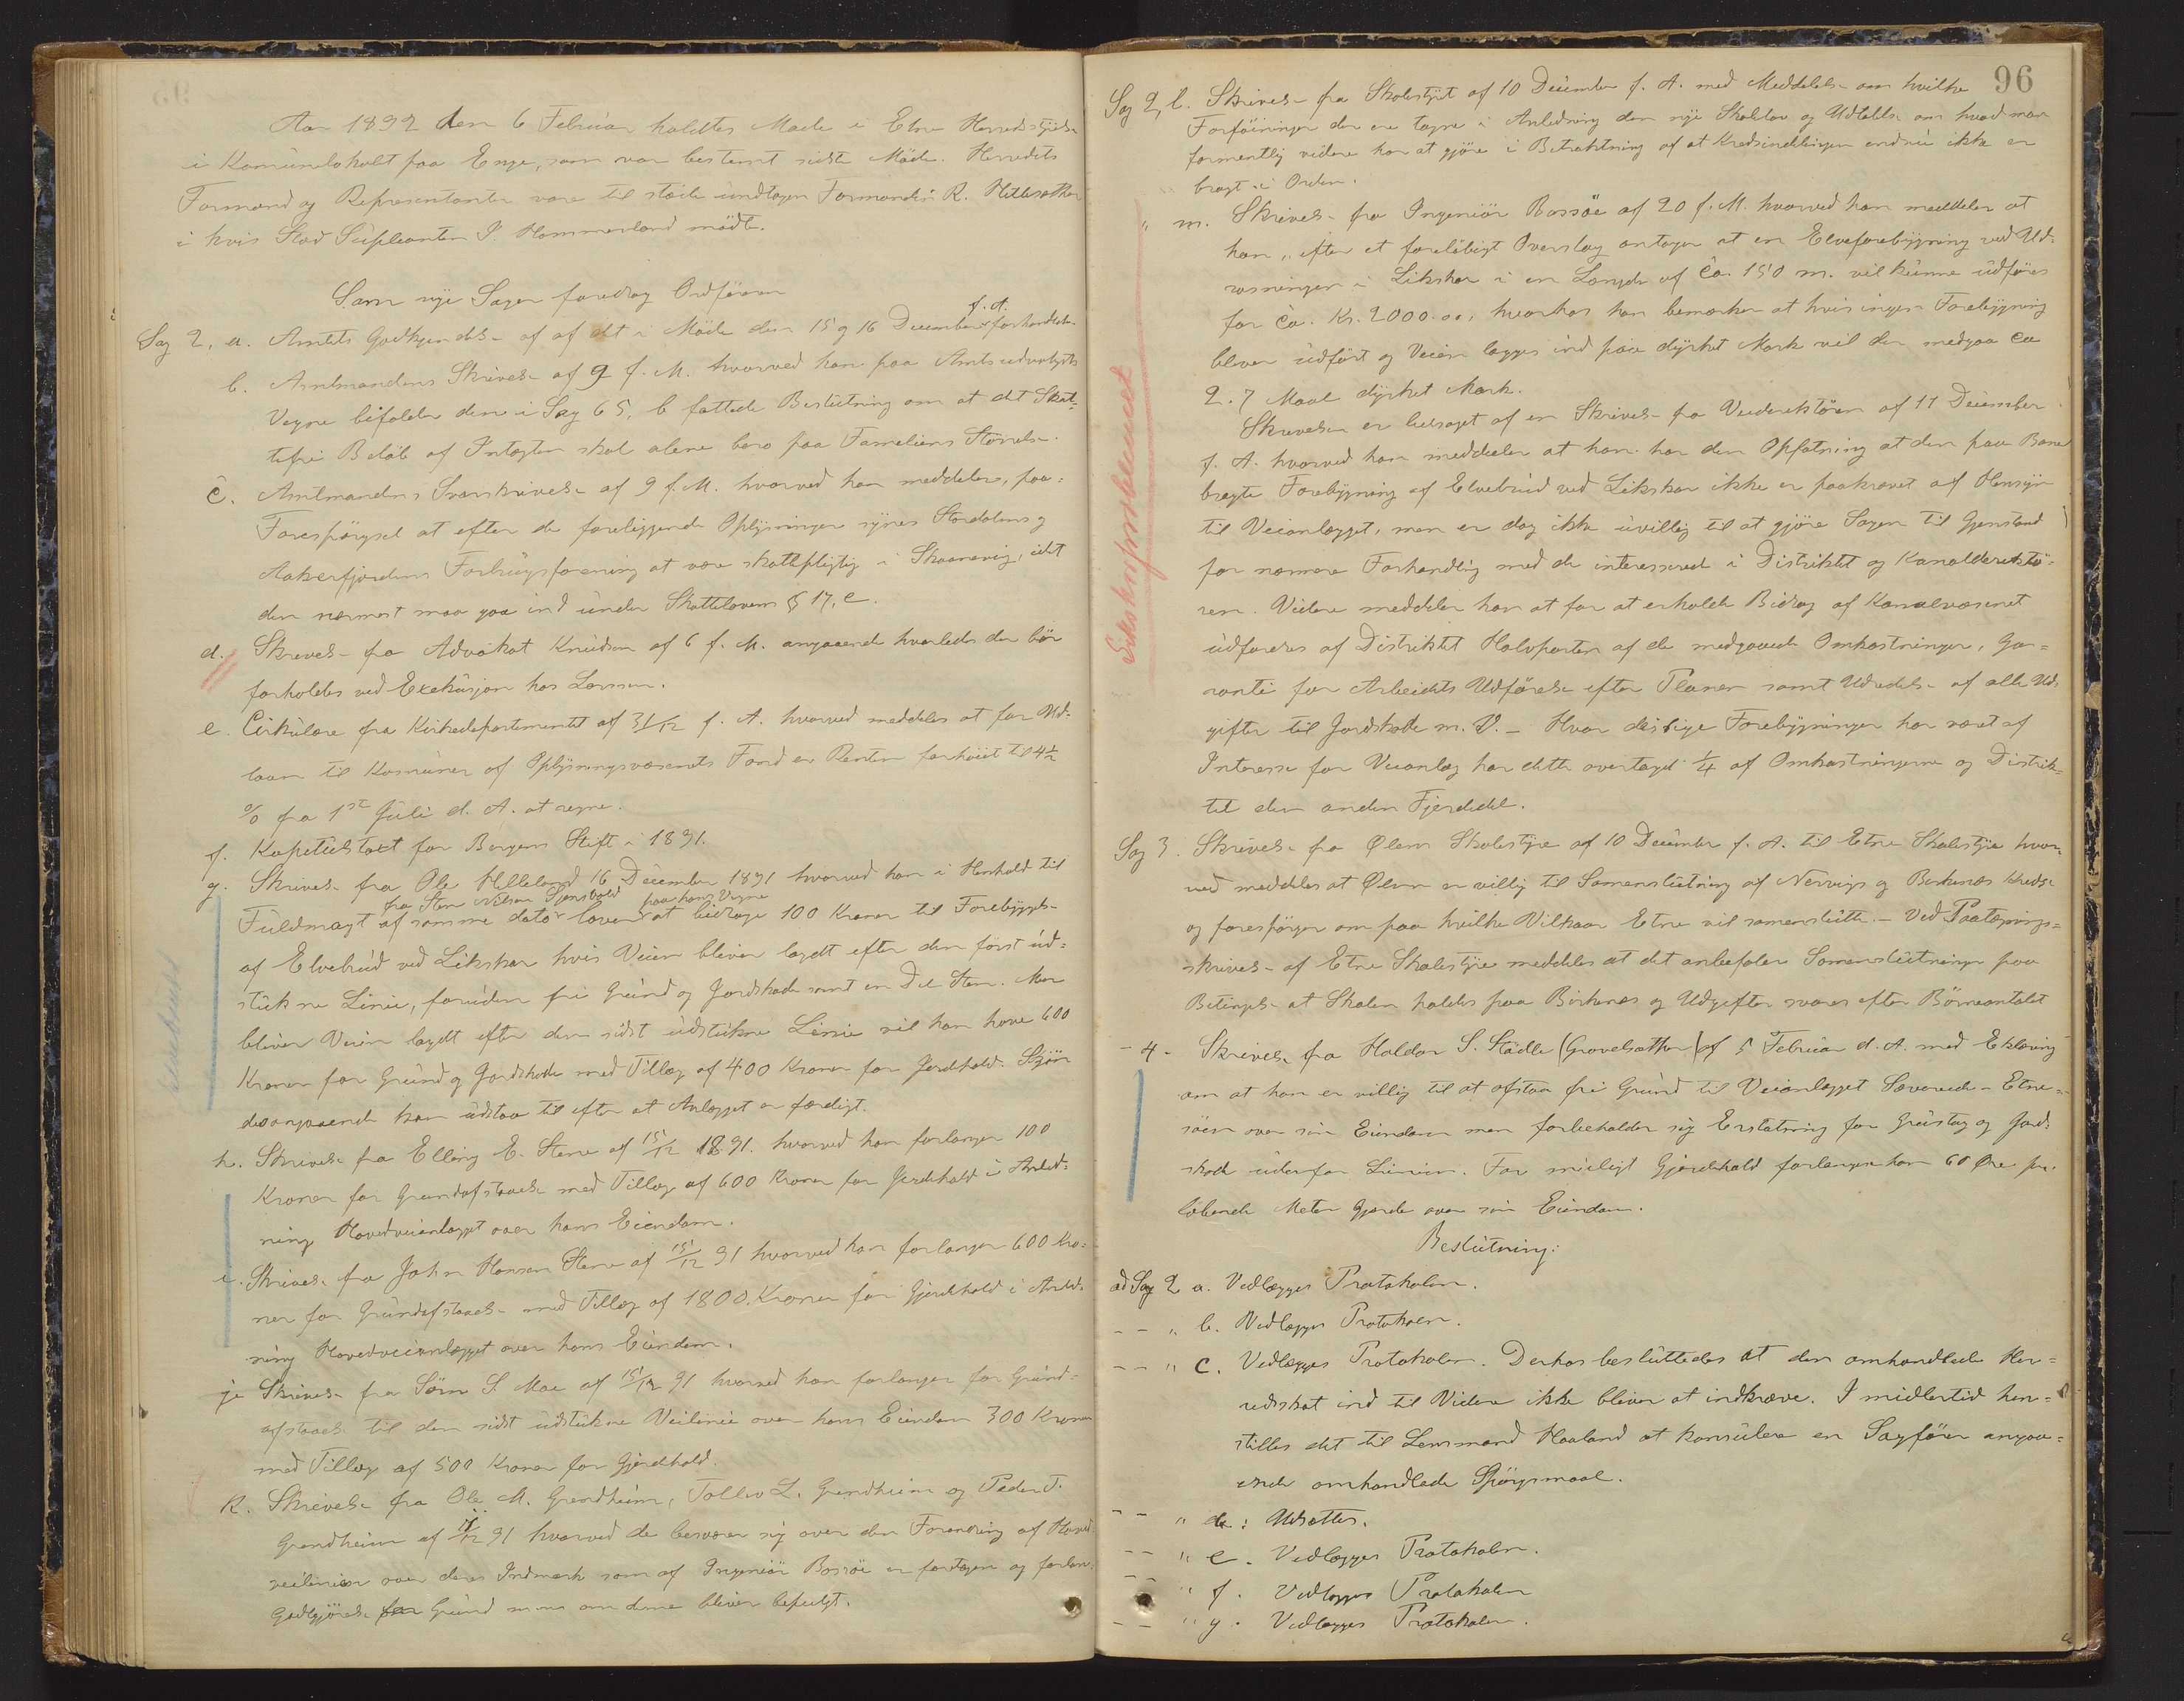 Aar 1892 den 6 Februar holdtes Møde i Etne Herredsstyrelse
i Komunelokalet paa Enge, som var bestemt sidste Møde. Herredets
Formænd og Representanter vare til stæde undtagen Formanden R. Hettesæther
i hvis Sted Supleanten P. Hammerland mødte.
Som nye Sager foredrog Ordføreren
Sag 2, a. Amtets Godkjendelse af af det i Møde den 15 og 16 December f. A. forhandlede
b. Amtmandens Skrivelse af 9 f. M. hvorved han paa Amtsudvalgets
Vegne bifalder den i Sag 65, b fattede Beslutning om at det Skat-
tefri Beløb af Intægten skal alene bero paa Fameliens Størrelse.
c. Amtmandens Svarskrivelse af 9 f. M. hvorved han meddeler, paa
Forespørgsel at efter de foreliggende Oplysninger synes Stordalens og
Aakerfjordens Forbrugsforening at være skattepligtig i Skaanevig, idet
den nærmest maa gaa ind under Skattelovens § 17, c.
d. Skrivelse fra Advokat Knudsen af 6 f. M. angaaende hvorledes der bør
forholdes ved Exekusjon hos Larsen.
e. Cirkulære fra Kirkedepartementet af 31/12 f. A. hvorved meddeles at for Ud-
laan til Komuner af Oplysningsvæsenets Fond er Renten forhøiet til 4 1/2
% fra 1ste Juli d. A. at regne.
f. Kapitelstaxt for Bergens Stift i 1891.
g. Skrivelse fra Ole Helleland 16 December 1891 hvorved han i Henhold til
fra Sten Nilsen paa hans Vegne
Fuldmagt af samme dato lover at bidrage 100 Kroner til Forebyggelse
af Elvebrud ved Likskar hvis Veien bliver lagdt efter den først ud-
stukne Linie, foruden fri Grund og Jordskade samt en Del Sten. Men
bliver Veien lagdt efter den sidst udstukne Linie vil han have 600
Kroner for Grund og Jordskade med Tillæg af 400 Kroner for Jerdehold. Skjøn
desangaaende kan udstaa til efter at Anlægget er færdigt.
Likskaret
h. Skrivelse fra Elling E. Stene af 15/12 1891. hvorved han forlanger 100
Kroner for Grundafstaaelse med Tillæg af 600 Kroner for Jerdehold i Anled-
ning Hovedveianlægget over hans Eiendom.
i. Skrivelse fra John Hansen Stene af 15/12 91 hvorved han forlanger 600 Kro-
ner for Grundafstaaelse med Tillæg af 1800. Kroner for Gjerdehold i Anled-
ning Hovedveianlægget over hans Eiendom.
j. Skrivelse fra Søren S. Moe af 15/12 91 hvorved han forlanger for Grund-
afstaaelse til den sidst udstukne Veilinie over hans Eiendom 300 Kroner
med Tillæg af 500 Kroner for Gjerdehold.
k. Skrivelse fra Ole M. Grendheim, Tollev L. Grendheim og Peder T.
Grendheim af /12 91 hvorved de besværer sig over den Forandring af Hoved-
veilinien over deres Indmark som af Ingeniør Bossøe er foretagen og forlan-
Godtgjørelse for Grund m. m. om denne bliver befulgt.
96
Sag 2, l. Skrivelse fra Skolestyret af 10 December f. A. med Meddelelse om hvilke
Forføininger der ere tagne i Anledning den nye Skolelov og Udtalelse om hvad man
formentlig videre har at gjøre i Betraktning af at Kredsindelingen endnu ikke er
bragt i Orden.
" m. Skrivelse fra Ingeniør Bossøe af 20 f. M. hvorved han meddeler at
han, efter et foreløbigt Overslag antager at en Elveforebygning ved Ud-
rasningen i Likskar i en Længde af ca. 150 m. vil kunne udføres
for ca. Kr. 2000.00, hvorhos han bemærker at hvis ingen Forebygning
bliver udført og Veien lægges ind paa dyrket Mark vil der medgaa ca
2.7 Maal dyrket Mark.
Likskarforbedringer
Skrivelsen er ledsaget af en Skrivelse fra Veidirektøren af 11 December
f. A. hvorved han meddeler at han har den Opfatning at den paa Bane
bragte Forebygning af Elvebrud ved Likskar ikke er paakrævet af Hensyn
til Veianlægget, men er dog ikke uvillig til at gjøre Sagen til Gjenstand
for nærmere Forhandling med de interesserede i Distriktet og Kanaldirektø-
ren. Videre meddeler han at for at erholde Bidrag af Kanalvæsenet
udfordres af Distriktet Halvparten af de medgaaede Omkostninger, Ga-
ranti for Arbeidets Udførelse efter Planen samt Udredelse af alle Ud-
gifter til Jordskade m. V. – Hvor deslige Forebygninger har været af
Interesse for Veianlæg har dette overtaget 1/4 af Omkostningerne og Distrik-
tet den anden Fjerdedel.
Sag 3. Skrivelse fra Ølens Skolestyre af 10 December f. A. til Etne Skolestyre hvor-
ved meddeles at Ølen er villig til Samenslutning af Nervigs og Berkenæs Kredse
og forespørger om paa hvilke Vilkaar Etne vil samenslutte. – Ved Paategnings-
skrivelse af Etne Skolestyre meddeles at det anbefaler Samenslutningen paa
Betingelse at Skolen holdes paa Birkenæs og Udgifter svares efter Børneantalet
- 4 - Skrivelse fra Haldor S. Stødle (Grovelsæther) af 5 Februar d. A. med Eklæring
om at han er villig til at afstaa fri Grund til Veianlægget Sævereide – Etne-
søen over sin Eiendom men forbeholder sig Erstatning for Grustag og Jord-
skade udenfor Linien. For muligt Gjerdehold forlanger han 60 Øre pr.
løbende Meter Gjerde over sin Eiendom.
Beslutning:
ad Sag 2 a. Vedlægges Protokolen.
- - " b. Vedlægges Protokolen.
- - " c. Vedlægges Protokolen. Derhos besluttedes at den omhandlede Her-
redsskat ind til Videre ikke bliver at indkræve. I midlertid hen-
stilles det til Lensmand Haaland at konsulere en Sagfører angaa-
ende omhandlede Spørgsmaal.
- - " d: Udsættes.
- - " e. Vedlægges Protokolen.
- - " f. Vedlægges Protokolen
- - " g. Vedlægges Protokolen.